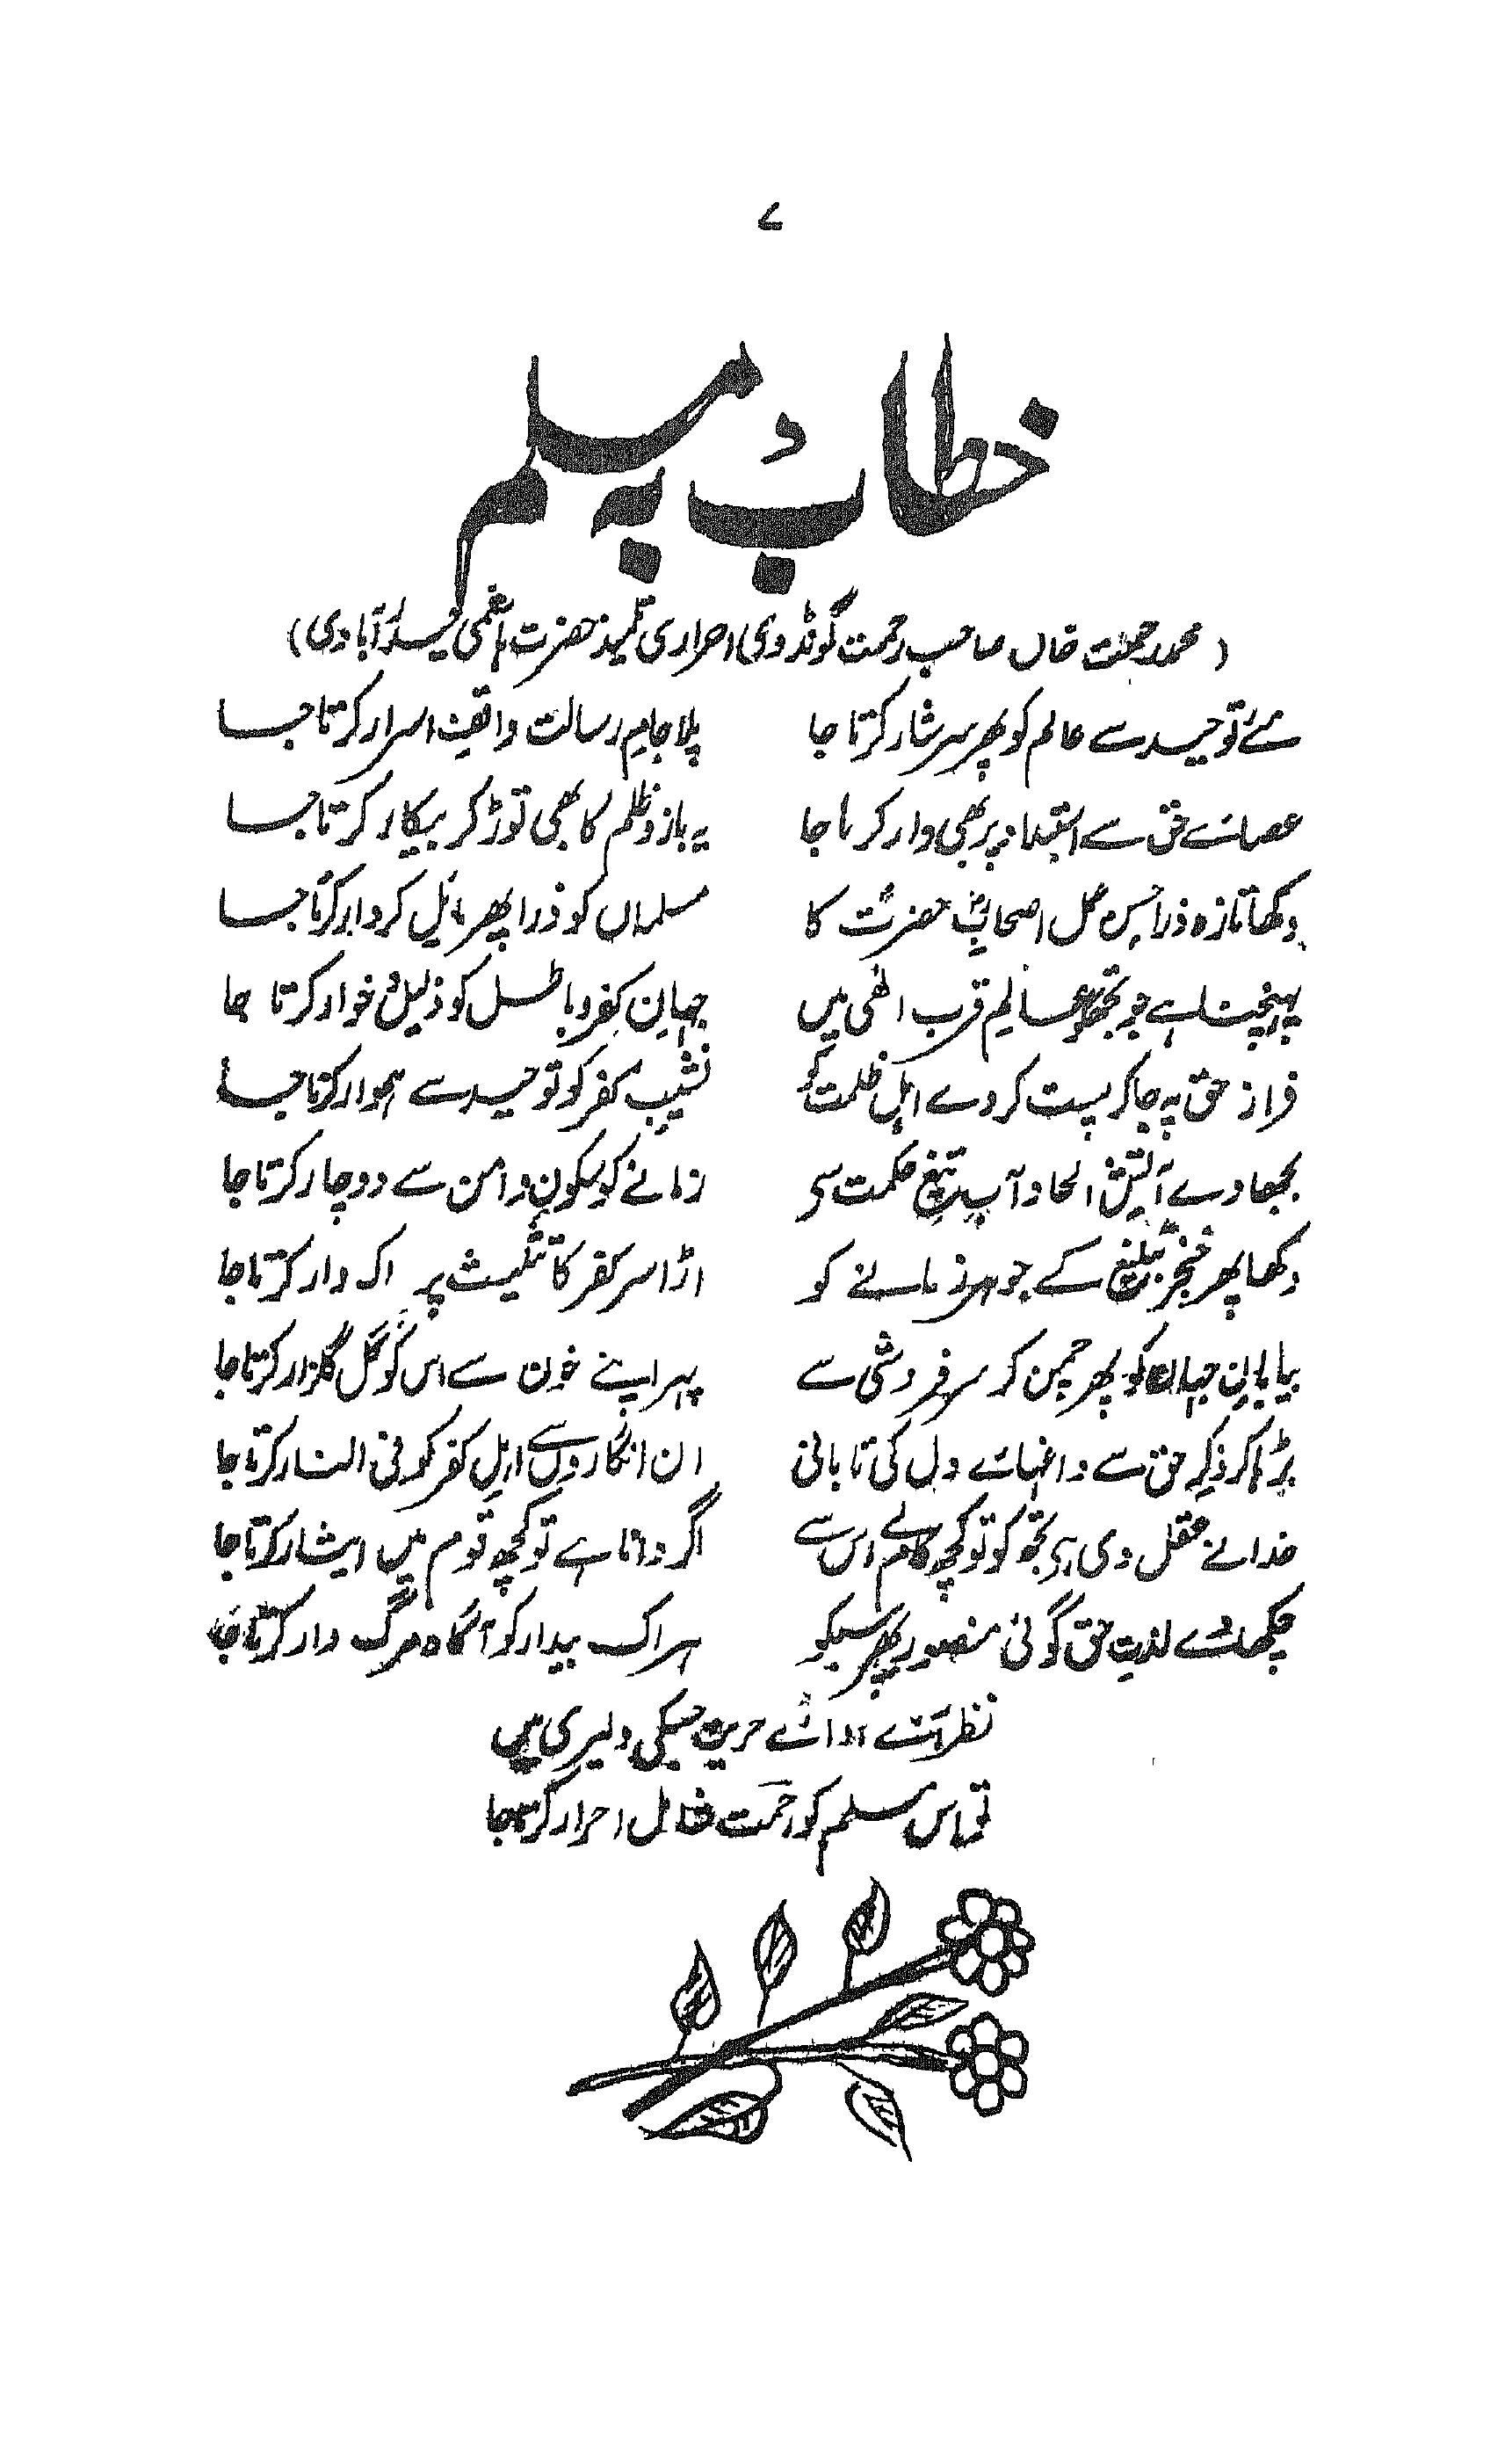 ۷
خطاب بہ مسلم
(محمد رحمت خاں صاحب رحمت گونڈوی احراری تلمیذ حضرت آبادی)
مئے توحید سے عالم کو پھر سرشار کرتا جا پلا جامِ رسالت واقفِ اسرار کرتا جا
عصائے حق سے استبداد پر بھی وار کرتا جا یہ بازو ظلم کا بھی توڑ کر بیکار کرتا جا
دکھا تازہ ذرا پس گل اصحابِؓ حضرتؐ کا مسلماں کو ذرا پھر مائیل کردار کرتا جا
پہنچنا ہے جو تجھکو عالمِ قرب الٰہی میں جہانِ کفر و باطل کو ذلیل و خوار کرتا جا
فراز حق پہ جا کر پست کر دے اہلِ ظلمت کو نشیبِ کفر کو توحید سے ہموار کرتا جا
بجھا دے آتشِ الحاد آبِ تیغِ حکمت سی زمانے کو سکون و امن سے دوچار کرتا جا
دکھا پھر خنجرِ تبلیغ کے جوہر زمانے کو اڑا سر کفر کا تثلیث پر اک وار کرتا جا
بیابانِ جہاں کو پھر چمن کر سرفروشی سے پھر اپنے خون سے اس کو گل گلزار کرتا جا
بڑہا کر ذکرِ حق سے داغہائے دل کی تابانی ان انگاروں سے اہلِ کفر کو فی النار کرتا جا
خدا نے عقل دی ہے تجھ کو تو کچھ کام لے اس سے اگر دانا ہے تو کچھ قوم میں ایثار کرتا جا
چکھا دے لذتِ حق گوئی منصور پھر سبکو ہر اک بیدار کو آگاہ مرگ دار کرتا جا
نظر آئے ادائے حریت جسکی دلیری میں
تو اس مسلم کو رحمت قائل احرار کرتا جا